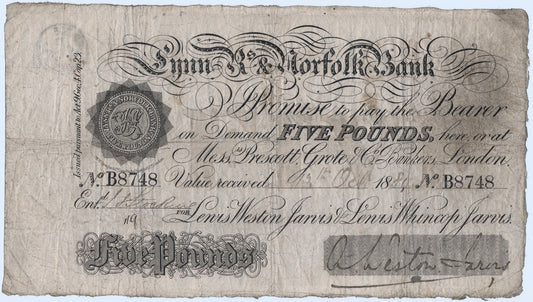 Lynn Rs & Norfolk Bank
I Promise to pay the Bearer
on Demand FIVE POUNDS, here, or at
Messrs Prescott, Grote & Co. Bankers, London.
No. B8748 Value received 188 No. B8748
Entd.
FOR Lewis Weston Jarvis & Lewis Whincop Jarvis.
Five Pounds
A Weston Jarvis
Issued pursuant to Act 9 Geo. 4. Cap. 23.